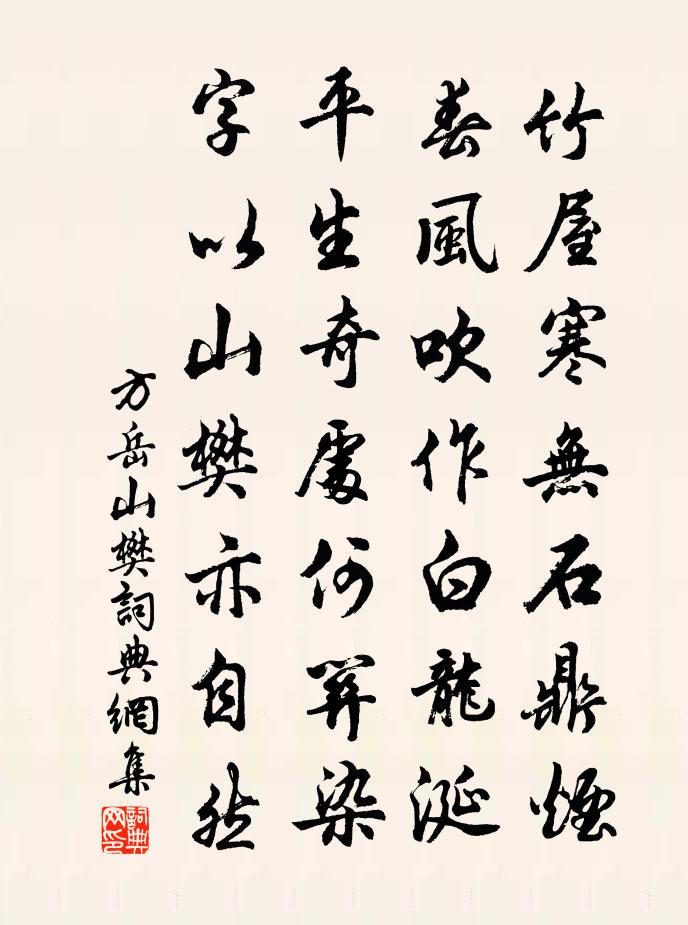 竹屋寒無石鼎煙
春風吹作白龍涎
平生奇處何關染
字以山樊亦自然
方岳山樊詞典網集
詞典网印